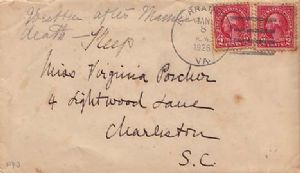 Written after Mamma's
death - Keep
JAN
8
1926
VA.
Miss Virginia Porcher
4 Lightwood Lane
Charleston
S.C.